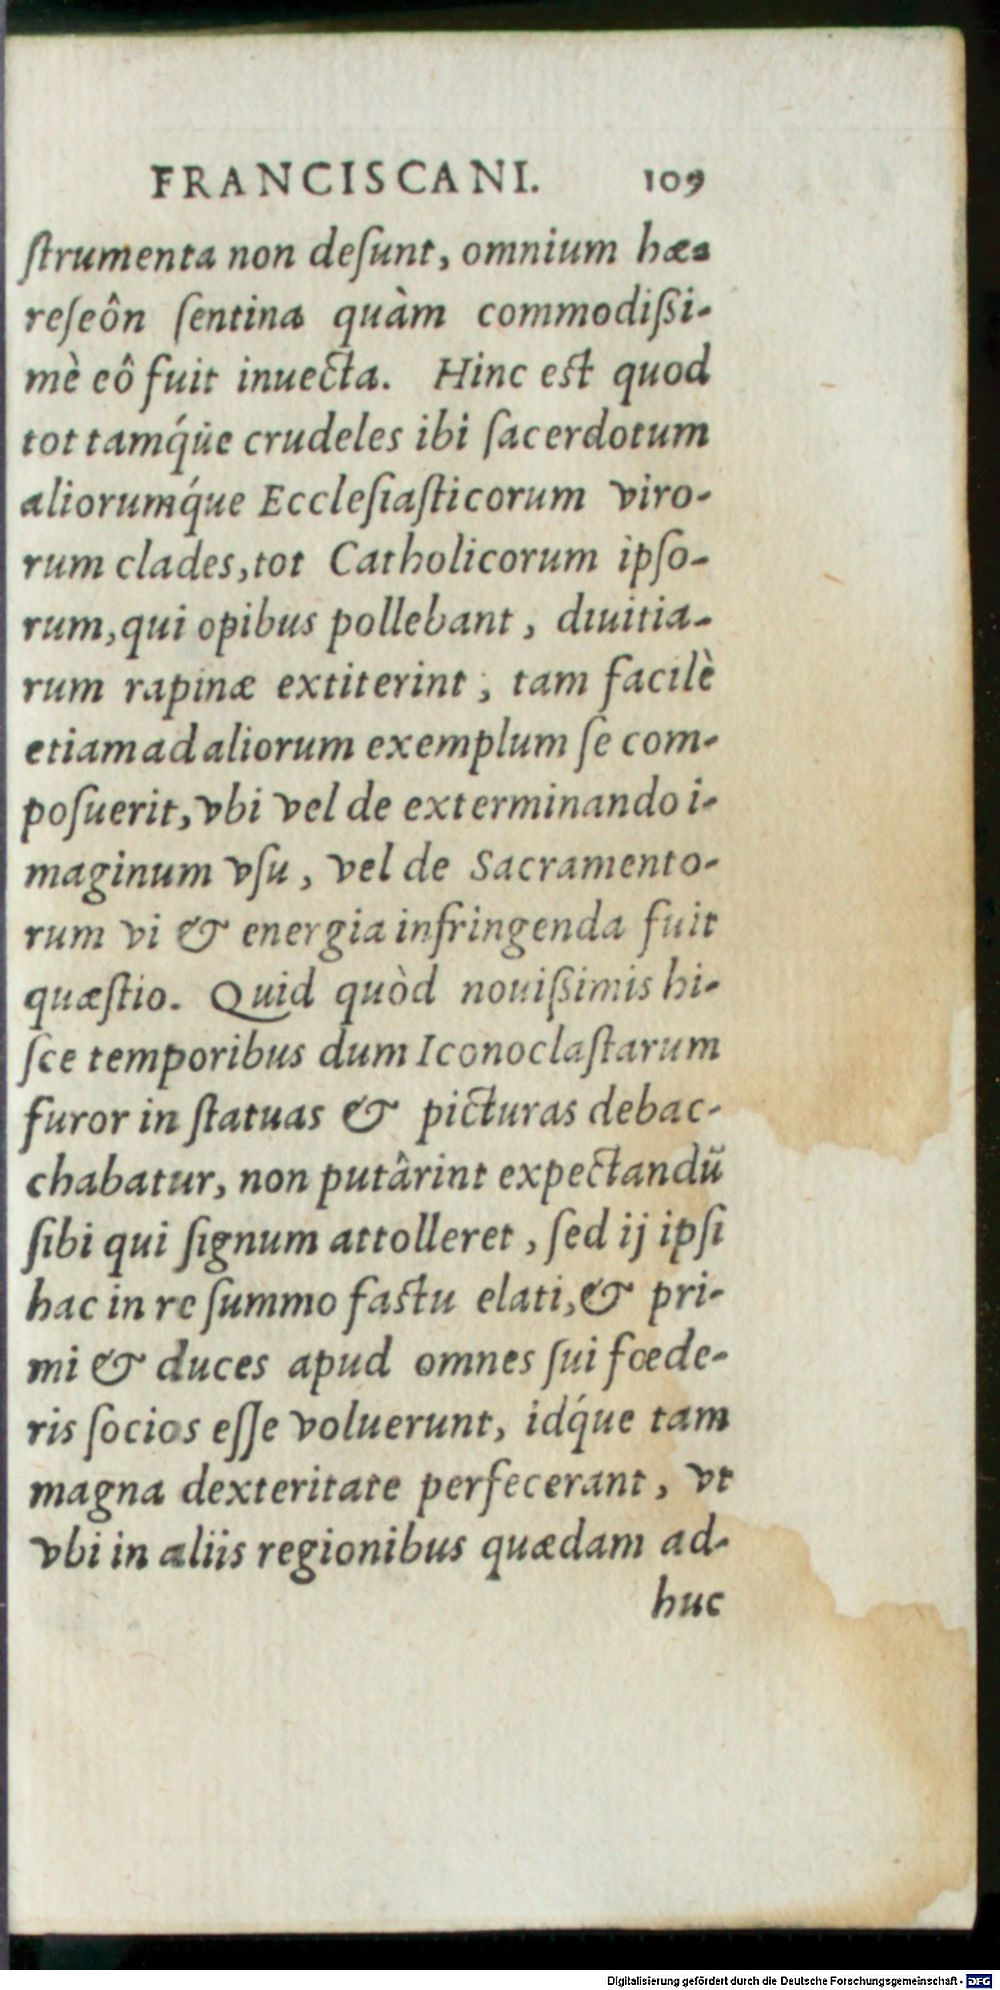 FRANCISCANI. 109
ſtrumenta non deſunt, omnium hæ-
reſeôn ſentina quàm commodiſsi-
mè eô fuit inuecta. Hinc eſt quod
tot tamq́ue crudeles ibi ſacerdotum
aliorumq́ue Eccleſiaſticorum viro-
rum clades, tot Catholicorum ipſo-
rum, qui opibus pollebant, diuitia-
rum rapinæ extiterint; tam facilè
etiam ad aliorum exemplum ſe com-
poſuerit, vbi vel de exterminando i-
maginum vſu, vel de Sacramento-
rum vi & energia infringenda fuit
quæſtio. Quid quòd nouiſsimis hi-
ſce temporibus dum Iconoclaſtarum
furor in ſtatuas & picturas debac-
chabatur, non putârint expectandū
ſibi qui ſignum attolleret, ſed ij ipſi
hac in re ſummo faſtu elati, & pri-
mi & duces apud omnes ſui fœde-
ris ſocios eſſe voluerunt, idq́ue tam
magna dexteritate perfecerant, vt
vbi in aliis regionibus quædam ad-
huc
Digitalisierung gefördert durch die Deutsche Forschungsgemeinschaft - DFG